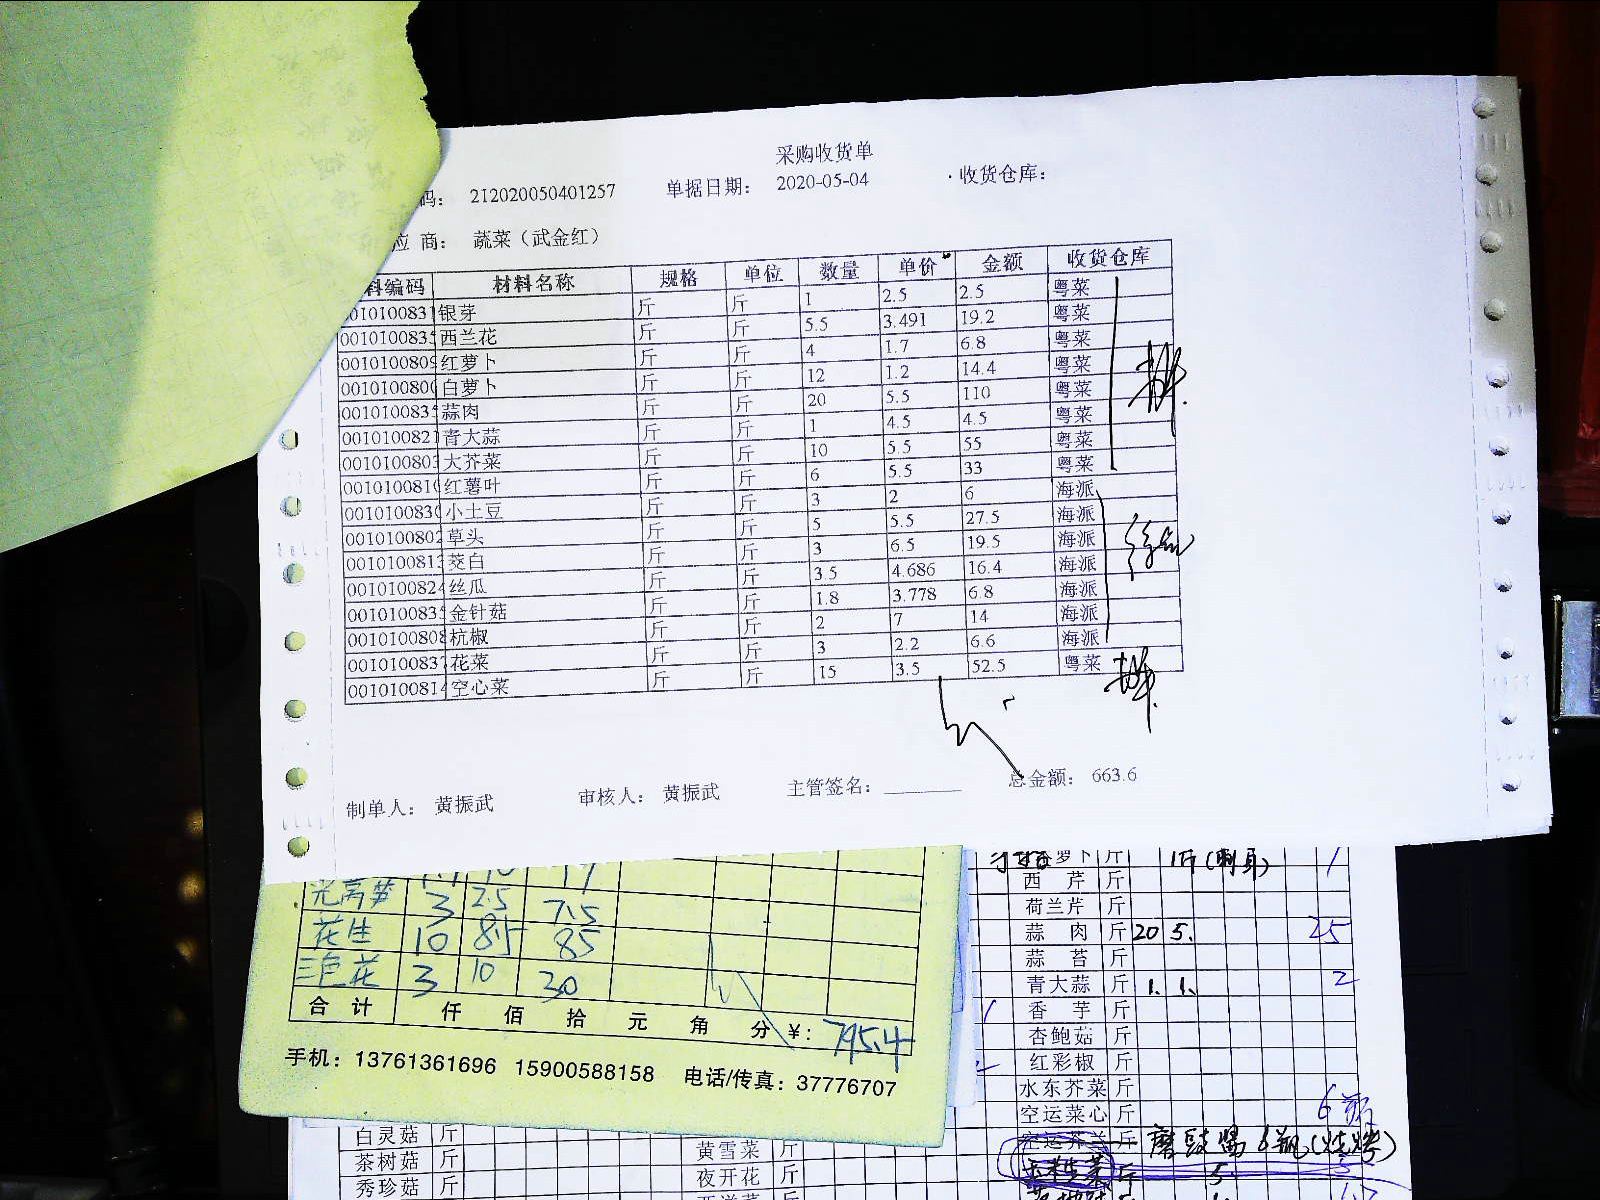 采购收货单
码： 212020050401257 单据日期： 2020-05-04 收货仓库：
应 商： 蔬菜（武金红）
料编码 材料名称 规格 单位 数量 单价 金额 收货仓库
0010100831 银芽 斤 斤 1 2.5 2.5 粤菜
001010083 西兰花 斤 斤 5.5 3.491 19.2 粤菜
001010080 红萝卜 斤 斤 4 1.7 6.8 粤菜
001010080 白萝卜 斤 斤 12 1.2 14.4 粤菜
001010083 蒜肉 斤 斤 20 5.5 110 粤菜
001010082 青大蒜 斤 斤 1 4.5 4.5 粤菜
001010080 大芥菜 斤 斤 10 5.5 55 粤菜
001010081 红薯叶 斤 斤 6 5.5 33 粤菜
001010083 小土豆 斤 斤 3 2 6 海派
001010080 草头 斤 斤 5 5.5 27.5 海派
001010081 茭白 斤 斤 3 6.5 19.5 海派
001010082 丝瓜 斤 斤 3.5 4.686 16.4 海派
001010083 金针菇 斤 斤 1.8 3.778 6.8 海派
001010080 杭椒 斤 斤 2 7 14 海派
001010083 花菜 斤 斤 3 2.2 6.6 海派
001010081 空心菜 斤 斤 15 3.5 52.5 粤菜
制单人： 黄振武 审核人： 黄振武 主管签名： 总金额： 663.6
光莴笋 3 2.5 7.5
花生 10 8.5 85
三色花 3 10 30
合 计 仟 佰 拾 元 角 分 ¥: 795.4
手机：13761361696 15900588158 电话/传真：37776707
萝卜 斤 1斤(刺身) 1
西 芹 斤
荷兰芹 斤
蒜 肉 斤 20 5. 25
蒜 苔 斤
青大蒜 斤 1. 1. 2
香 芋 斤
杏鲍菇 斤
红彩椒 斤
水东芥菜 斤
空运菜心 斤 6瓶
空运芥兰 斤 磨豉酱 6瓶(烧烤)
斤 5.
白灵菇 斤
茶树菇 斤
秀珍菇 斤
黄雪菜 斤
夜开花 斤